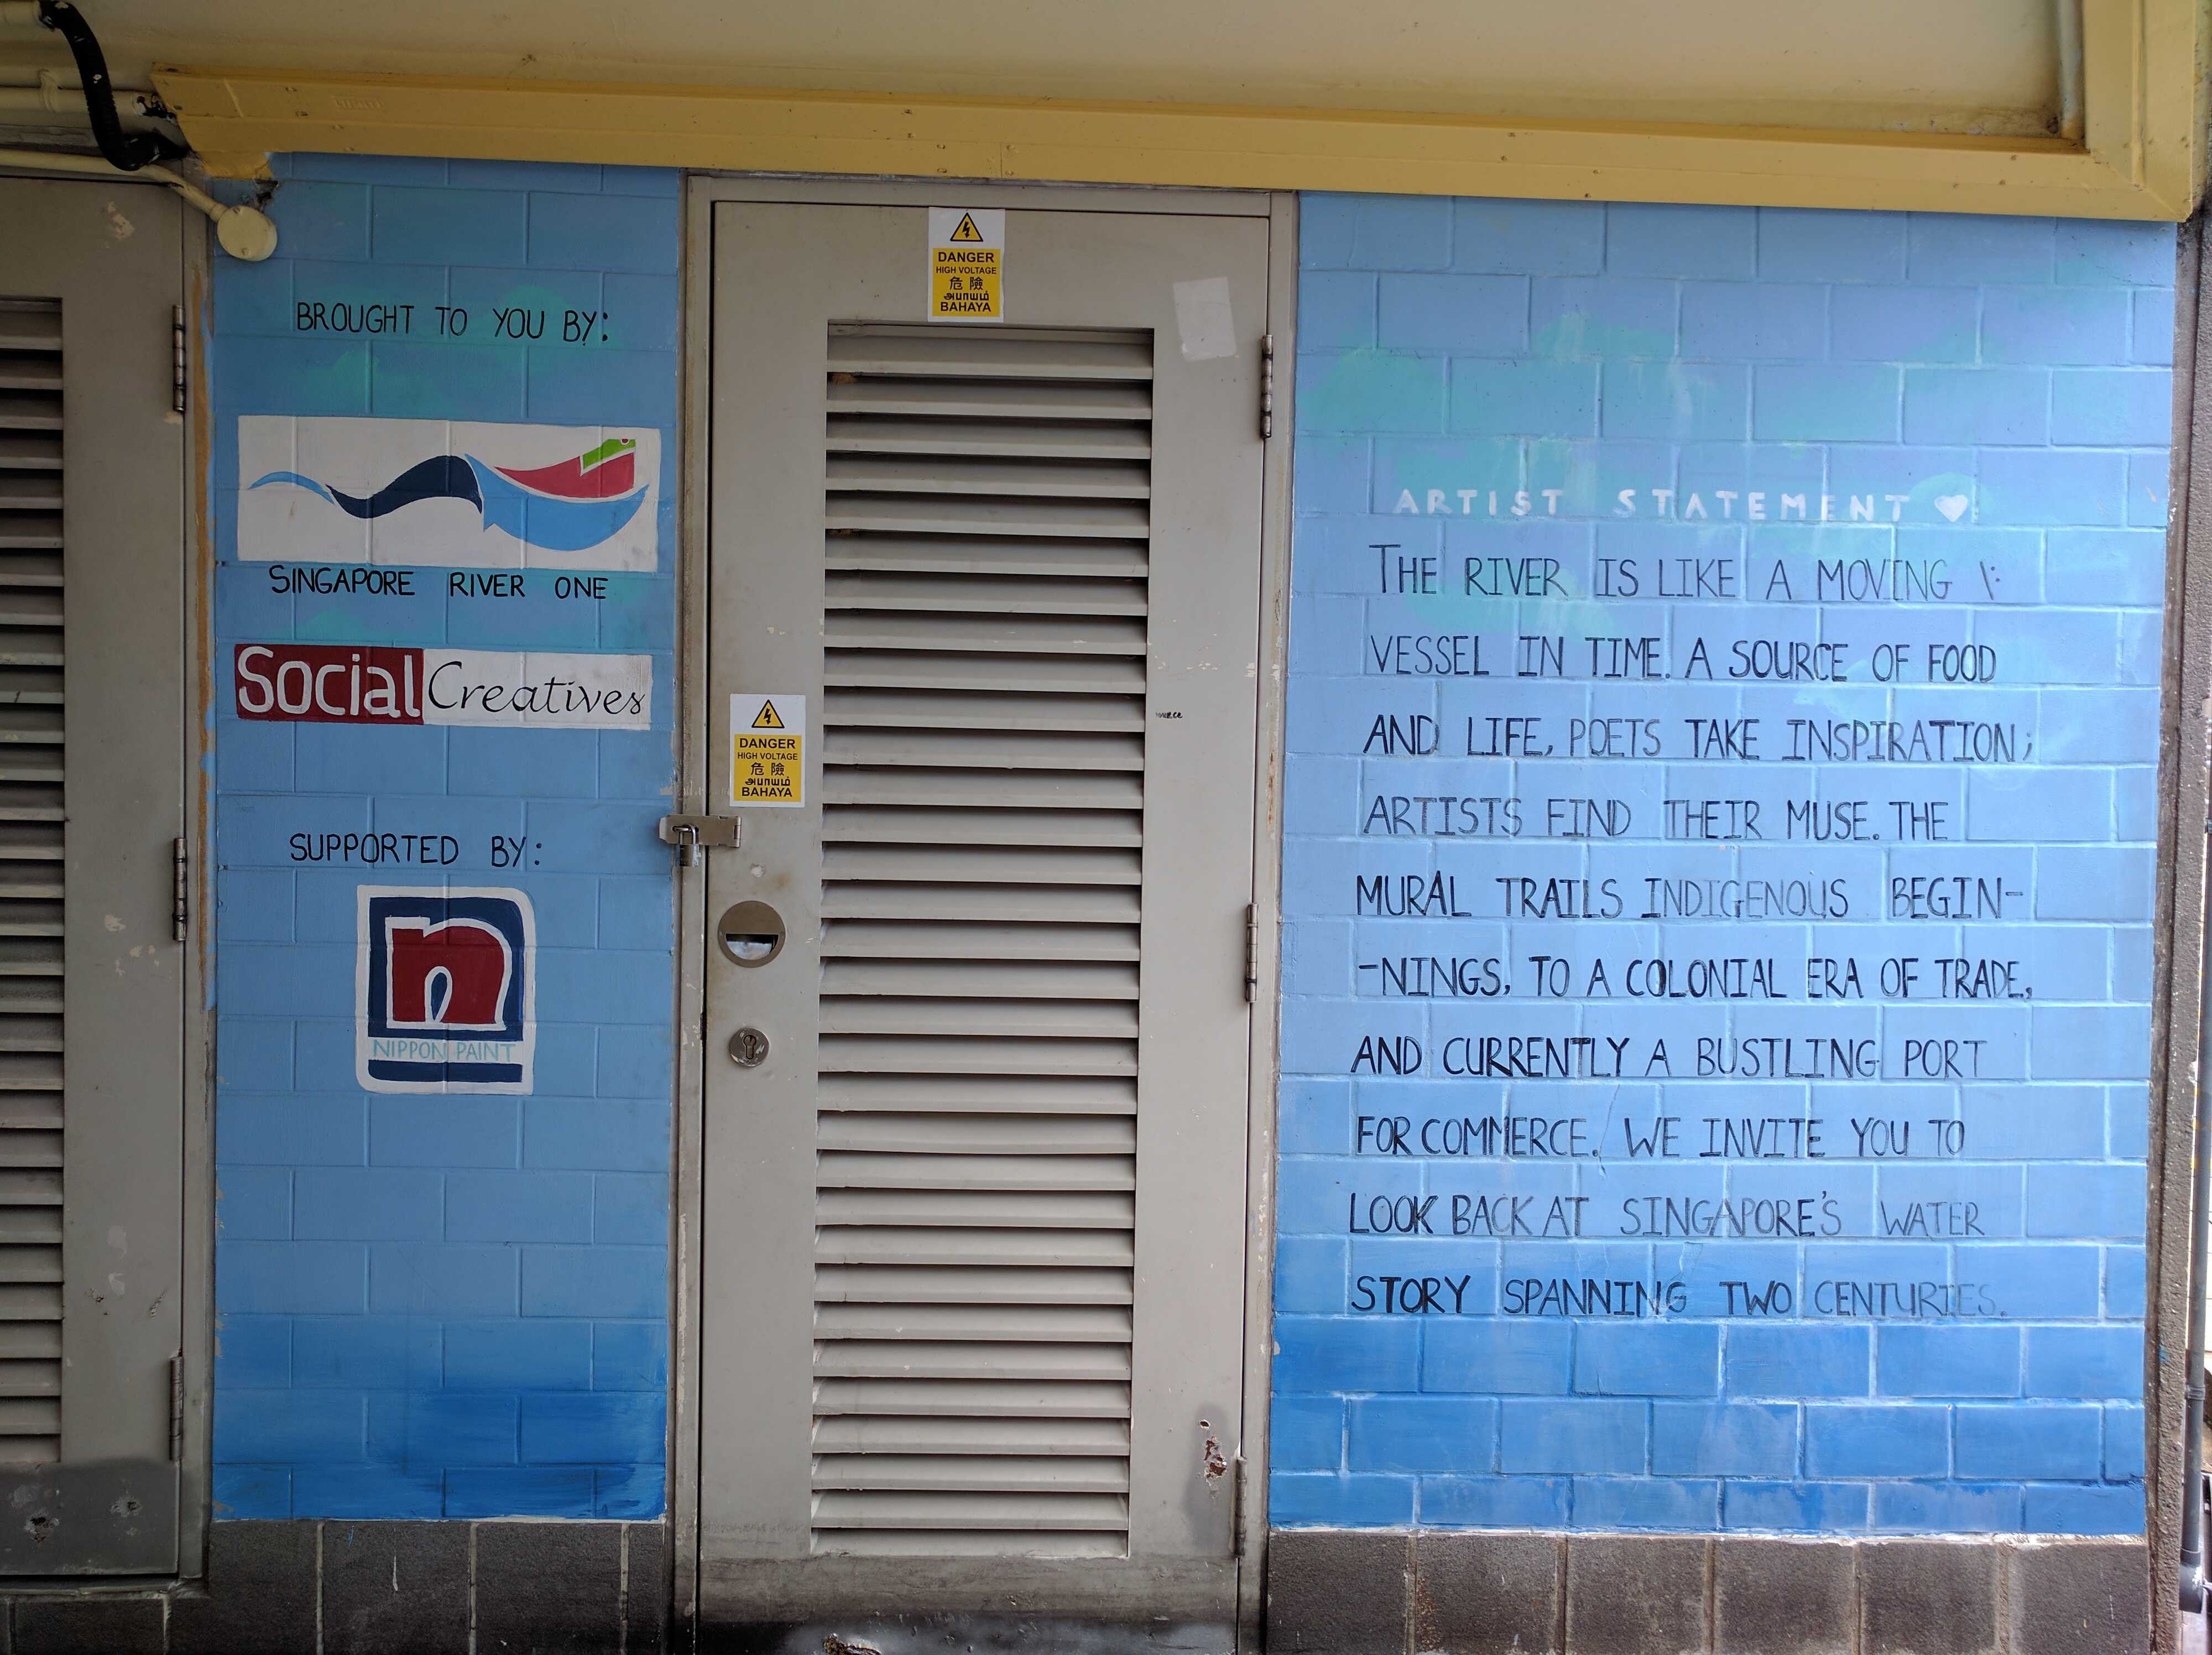 BROUGHT TO YOU BY:
SINGAPORE RIVER ONE
Social Creatives
SUPPORTED BY:
n
NIPPON PAINT
DANGER
HIGH VOLTAGE
危險
அபாயம்
BAHAYA
DANGER
HIGH VOLTAGE
危險
அபாயம்
BAHAYA
ARTIST STATEMENT
THE RIVER IS LIKE A MOVING
VESSEL IN TIME. A SOURCE OF FOOD
AND LIFE, POETS TAKE INSPIRATION;
ARTISTS FIND THEIR MUSE. THE
MURAL TRAILS INDIGENOUS BEGIN-
-NINGS, TO A COLONIAL ERA OF TRADE,
AND CURRENTLY A BUSTLING PORT
FOR COMMERCE. WE INVITE YOU TO
LOOK BACK AT SINGAPORE'S WATER
STORY SPANNING TWO CENTURIES.